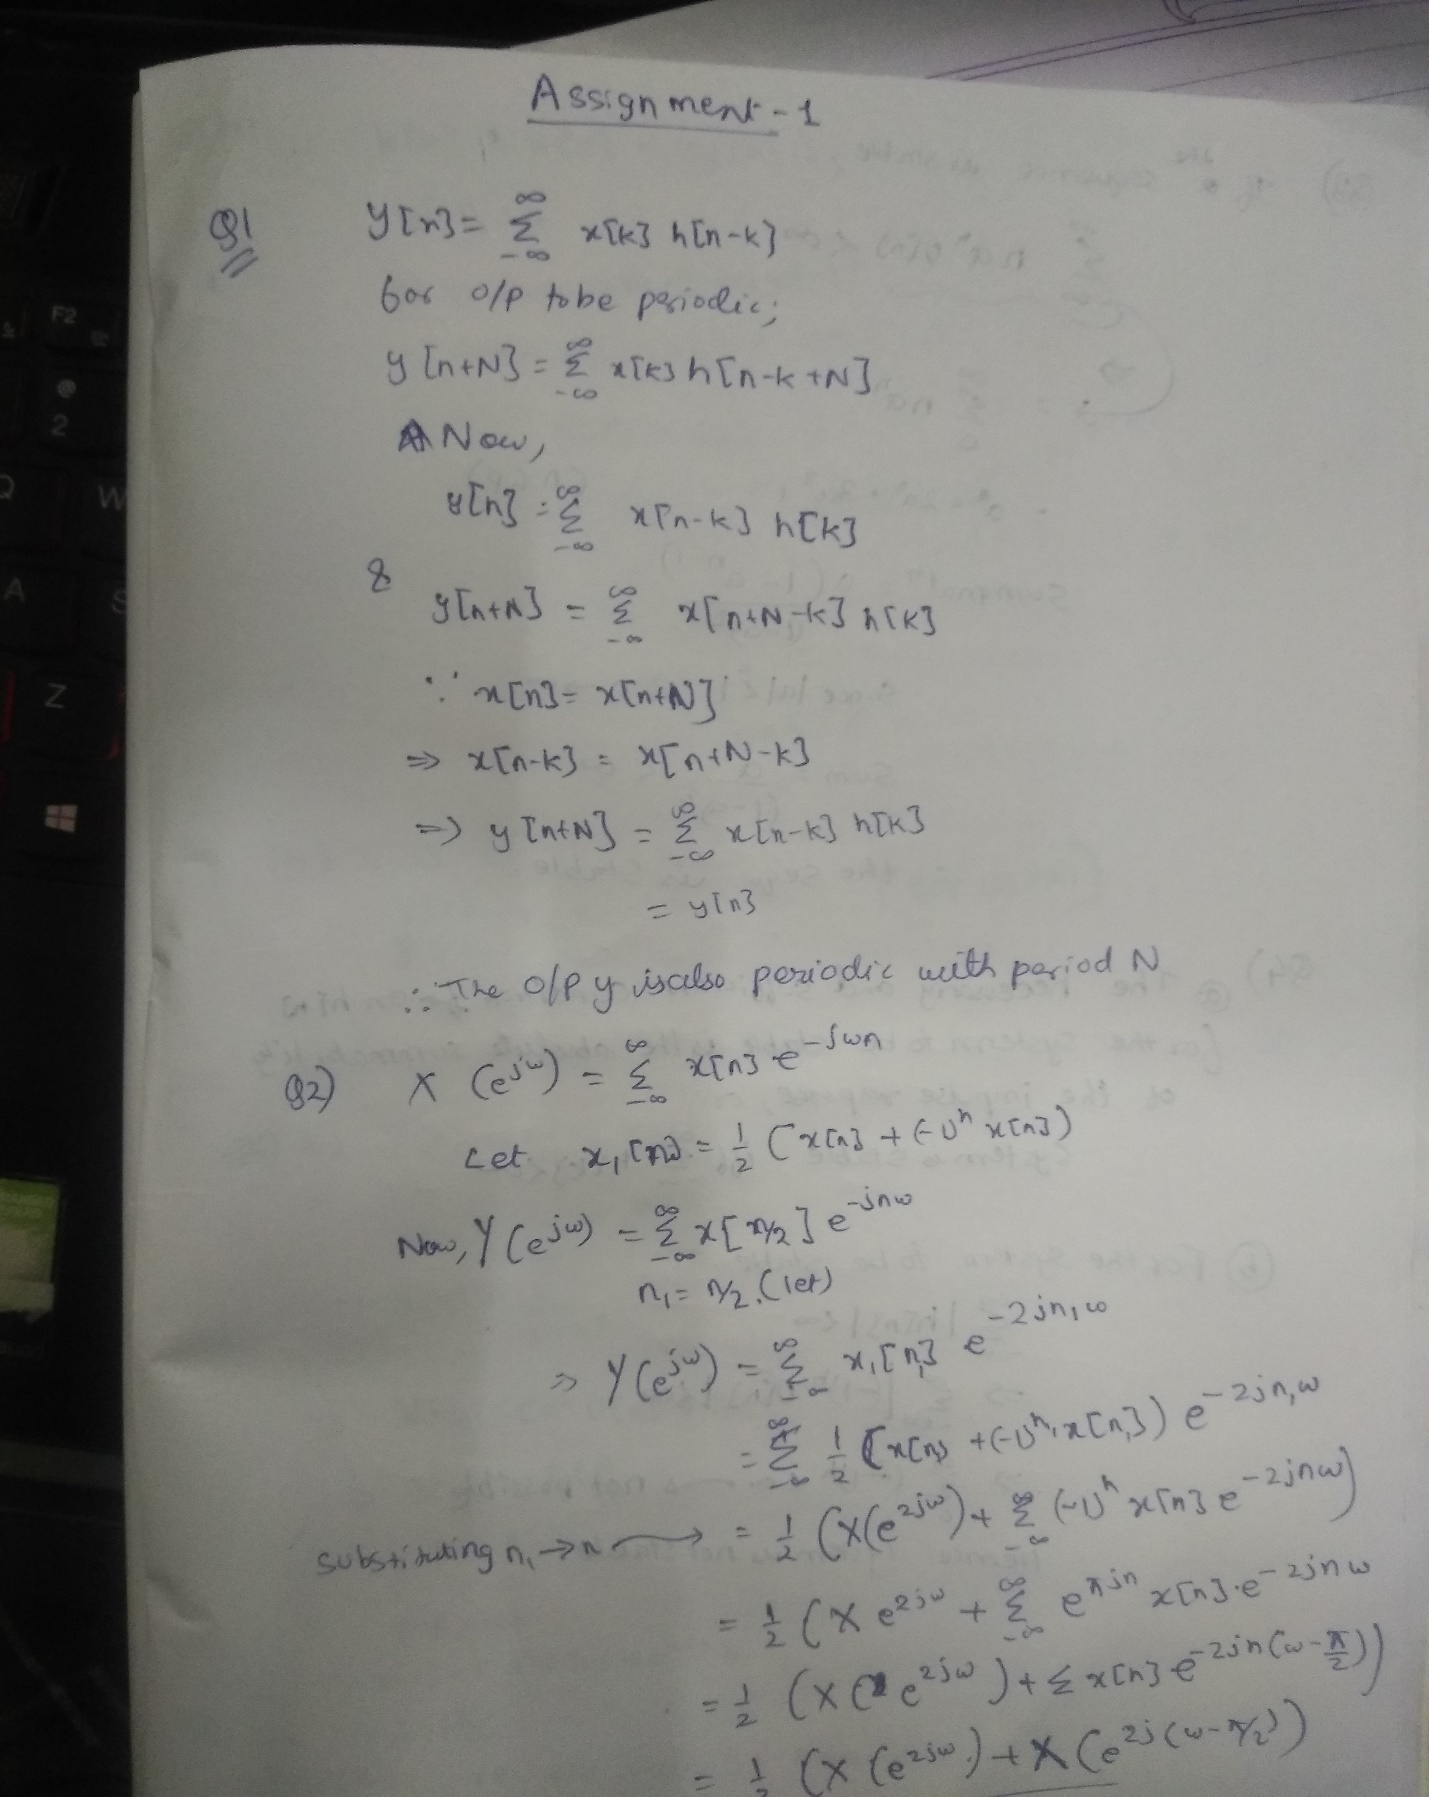 Assignment-1
Q1 y[n] = ∞ Σ -∞ x[k] h[n-k]
for o/p to be periodic;
y[n+N] = ∞ Σ -∞ x[k] h[n-k+N]
Now,
y[n] = ∞ Σ -∞ x[n-k] h[k]
&
y[n+N] = ∞ Σ -∞ x[n+N-k] h[k]
∵ x[n] = x[n+N]
⇒ x[n-k] = x[n+N-k]
⇒ y[n+N] = ∞ Σ -∞ x[n-k] h[k]
= y[n]
∴ The o/p y is also periodic with period N
Q2) X (e^jω) = ∞ Σ -∞ x[n] e^-jωn
Let x₁[n] = 1/2 (x[n] + (-1)^n x[n])
Now, Y(e^jω) = ∞ Σ -∞ x[n/2] e^-jnω
n₁ = n/2 (let)
⇒ Y(e^jω) = ∞ Σ -∞ x₁[n₁] e^-2jn₁ω
= ∞ Σ -∞ 1/2 (x[n₁] + (-1)^n₁ x[n₁]) e^-2jn₁ω
substituting n₁ → n → = 1/2 (X(e^2jω) + ∞ Σ -∞ (-1)^n x[n] e^-2jnω)
= 1/2 (X e^2jω + ∞ Σ -∞ e^πjn x[n] · e^-2jnω
= 1/2 (X(e^2jω) + Σ x[n] e^-2jn(ω-π/2))
= 1/2 (X(e^2jω) + X(e^2j(ω-π/2))
F2
@
2
Q
W
A
S
Z